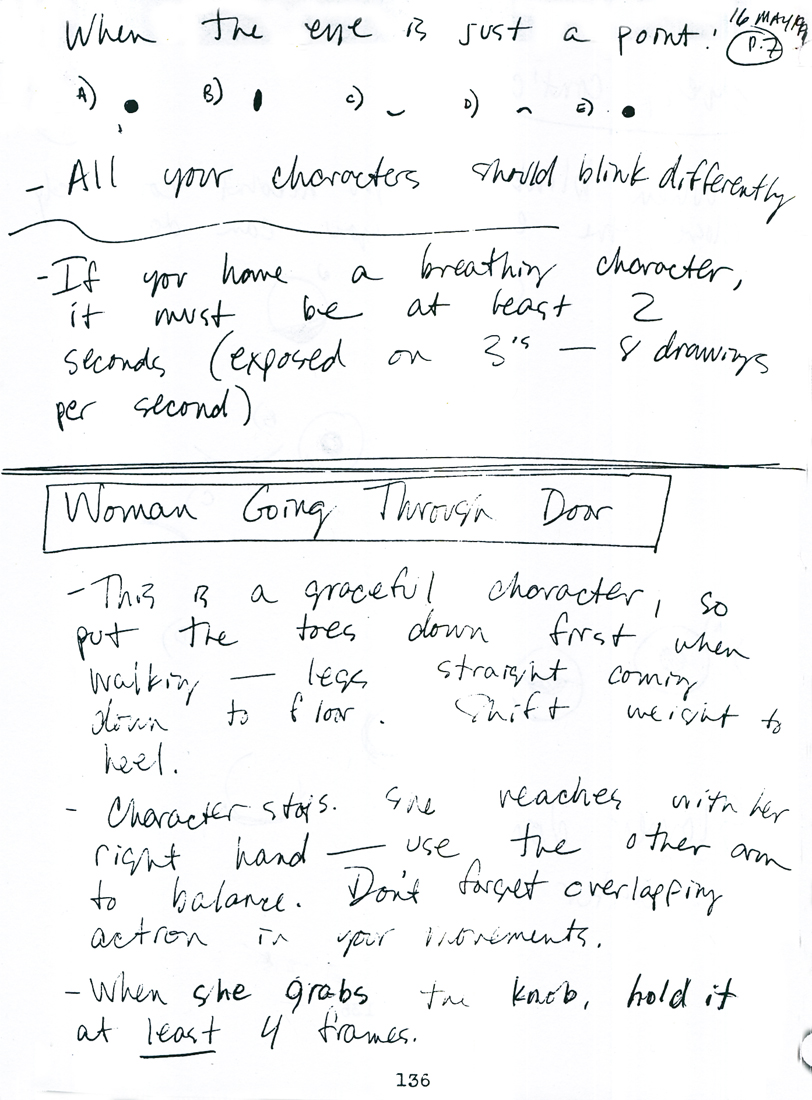 When the eye is just a point:
16 MAY
P.7
A) B) C) D) E)
- All your characters should blink differently
- If you have a breathing character,
it must be at least 2
seconds (exposed on 3's — 8 drawings
per second)
Woman Going Through Door
- This is a graceful character, so
put the toes down first when
walking — legs straight coming
down to floor. Shift weight to
heel.
- Character stops. She reaches with her
right hand — use the other arm
to balance. Don't forget overlapping
action in your movements.
- When she grabs the knob, hold it
at least 4 frames.
136